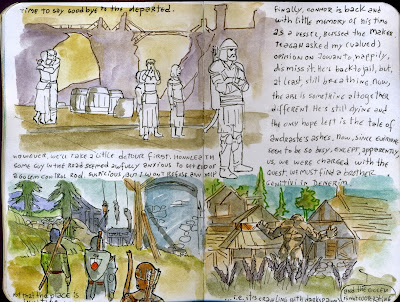 TIME TO SAY GOODBYE TO THE DEPARTED.
HOWEVER, WE'LL TAKE A LITTLE DETOUR FIRST.
SOME GUY IN THE ROAD SEEMED AWFULLY ANXIOUS TO
GOLEM CONTROL ROD. SUSPICIOUS, BUT I WON'T REFUSE ANY HELP
THE PLACE IS
FINALLY, CONNOR IS BACK AND
WITH LITTLE MEMORY OF HIS TIME
AS A VESSEL, BLESSED THE MAKER.
TEAGAN ASKED MY (VALUED)
OPINION ON JOWAN TO HAPPILY,
DISMISS IT. HE'S BACK TO JAIL, BUT,
AT LEAST, STILL BREATHING. NOW,
THE ARL IS SOMETHING ALTOGETHER
DIFFERENT. HE'S STILL DYING AND
THE ONLY HOPE LEFT IS THE TALE OF
ANDRASTE'S ASHES. NOW, SINCE EVERYONE
SEEM TO BE SO BUSY, EXCEPT, APPARENTLY,
US, WE WERE CHARGED WITH THE
QUEST. WE MUST FIND A BROTHER
GENITIVI IN DENERIM.
...I.E., IT'S CRAWLING WITH DARKSPAWN
AND THE GOLEM